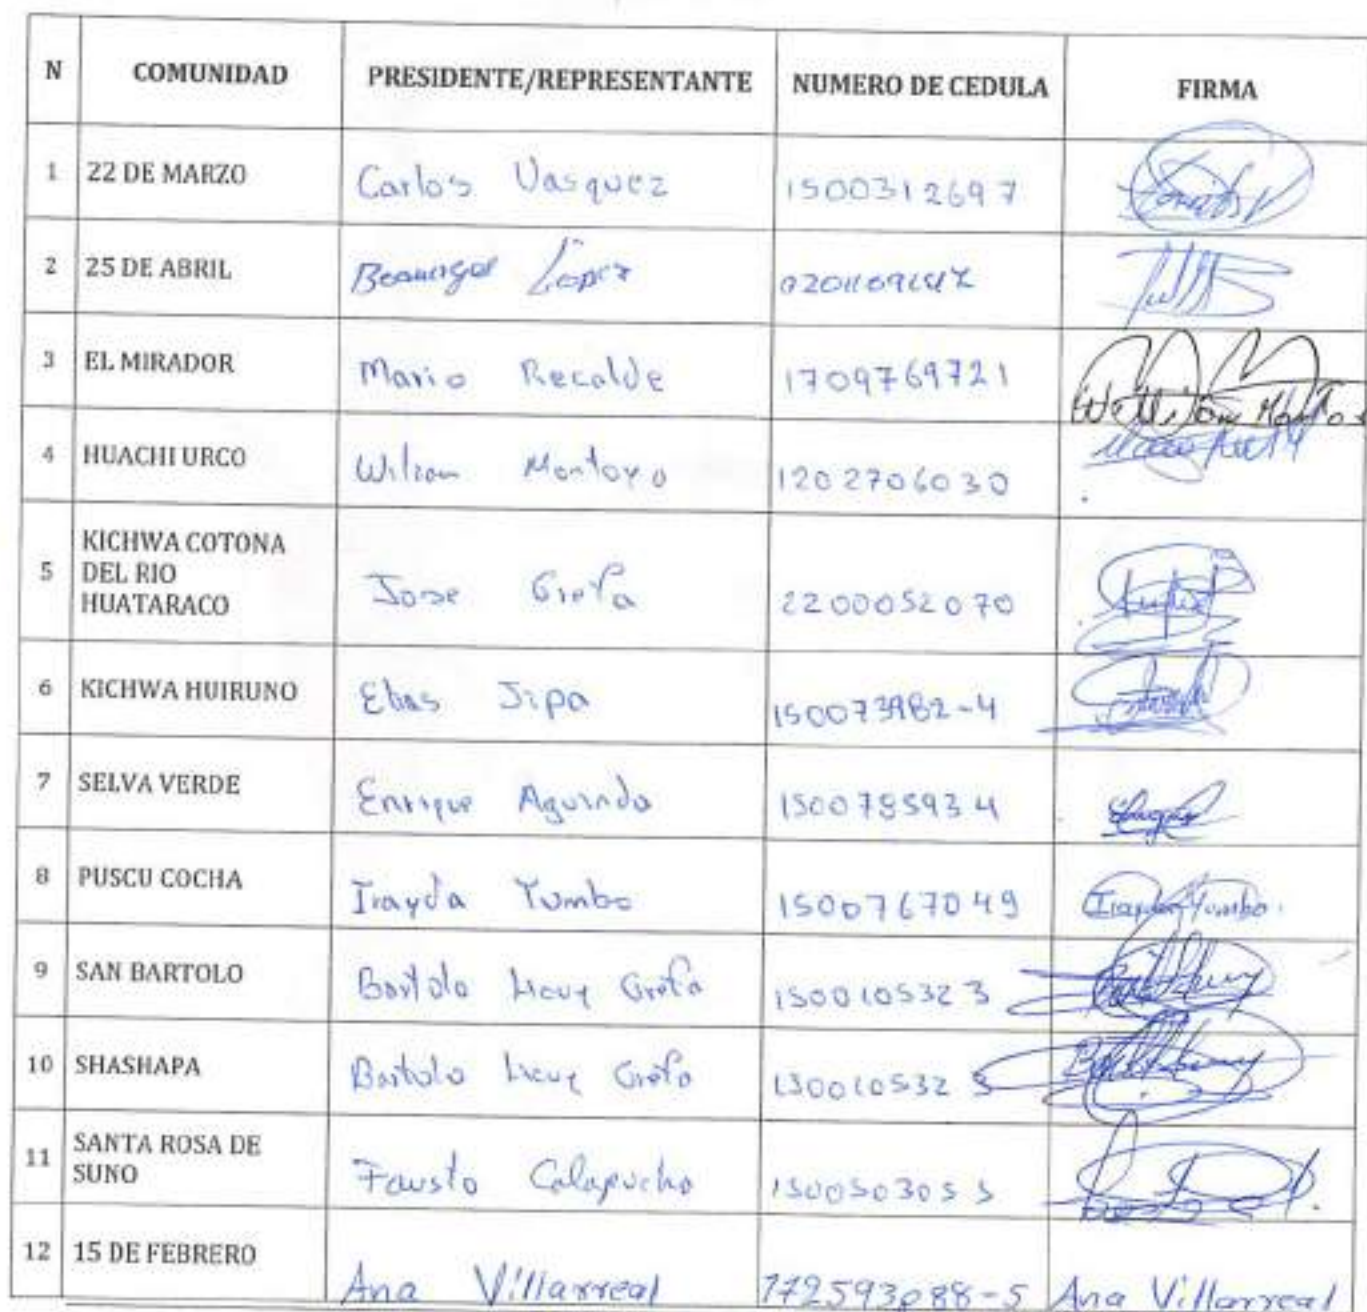 N COMUNIDAD PRESIDENTE/REPRESENTANTE NUMERO DE CEDULA FIRMA
1 22 DE MARZO Carlos Vasquez 1500312697
2 25 DE ABRIL Lopez
3 EL MIRADOR Mario Recalde 1709769721
4 HUACHI URCO Wilson Montoya 1202706030
5 KICHWA COTONA
DEL RIO
HUATARACO Jose Grefa 2200052070
6 KICHWA HUIRUNO Elias Jipa 150073982-4
7 SELVA VERDE Enrique Aguinda 1500785934
8 PUSCU COCHA Irayda Yumbo 1500767049 Irayda Yumbo.
9 SAN BARTOLO Bartolo Licuy Grefa 1500105323
10 SHASHAPA Bartolo Licuy Grefa 1500105323
11 SANTA ROSA DE
SUNO Fausto Calapucha 1500503055
12 15 DE FEBRERO Ana Villarreal 172593088-5 Ana Villarreal